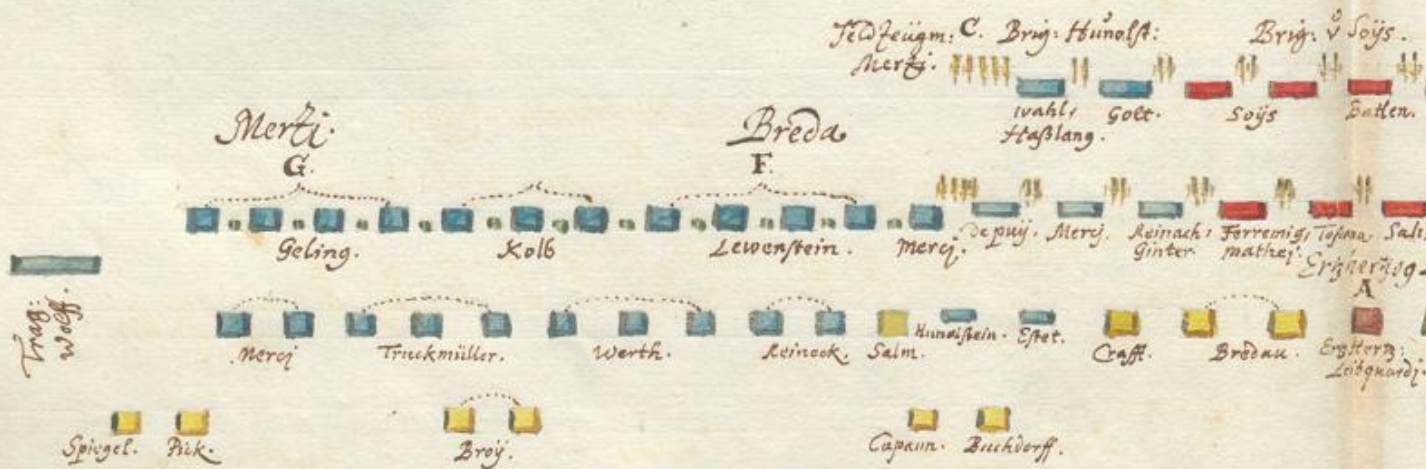 Feldzeügm: C. Brig: Hunolst: Brig: v Soÿs.
Mertzi.
Wahl, Haßlang. Golt. Soÿs Batlen.
Mertzi. Breda
G. F.
Geling. Kolb Lewenstein. Mercj. De puÿ. Mercj. Reinach, Ginter. Ferreinig, mathej. Toscna Sals
Ertzhertzog
A
Trag: Wolff.
Mercj Truckmüller. Werth. Reineck. Salm. Hunolstein. Estet. Crafft. Bredau. Ertz Hertz: Leibquardj.
Spiegel. Pick. Broÿ. Capaun. Buchdorff.